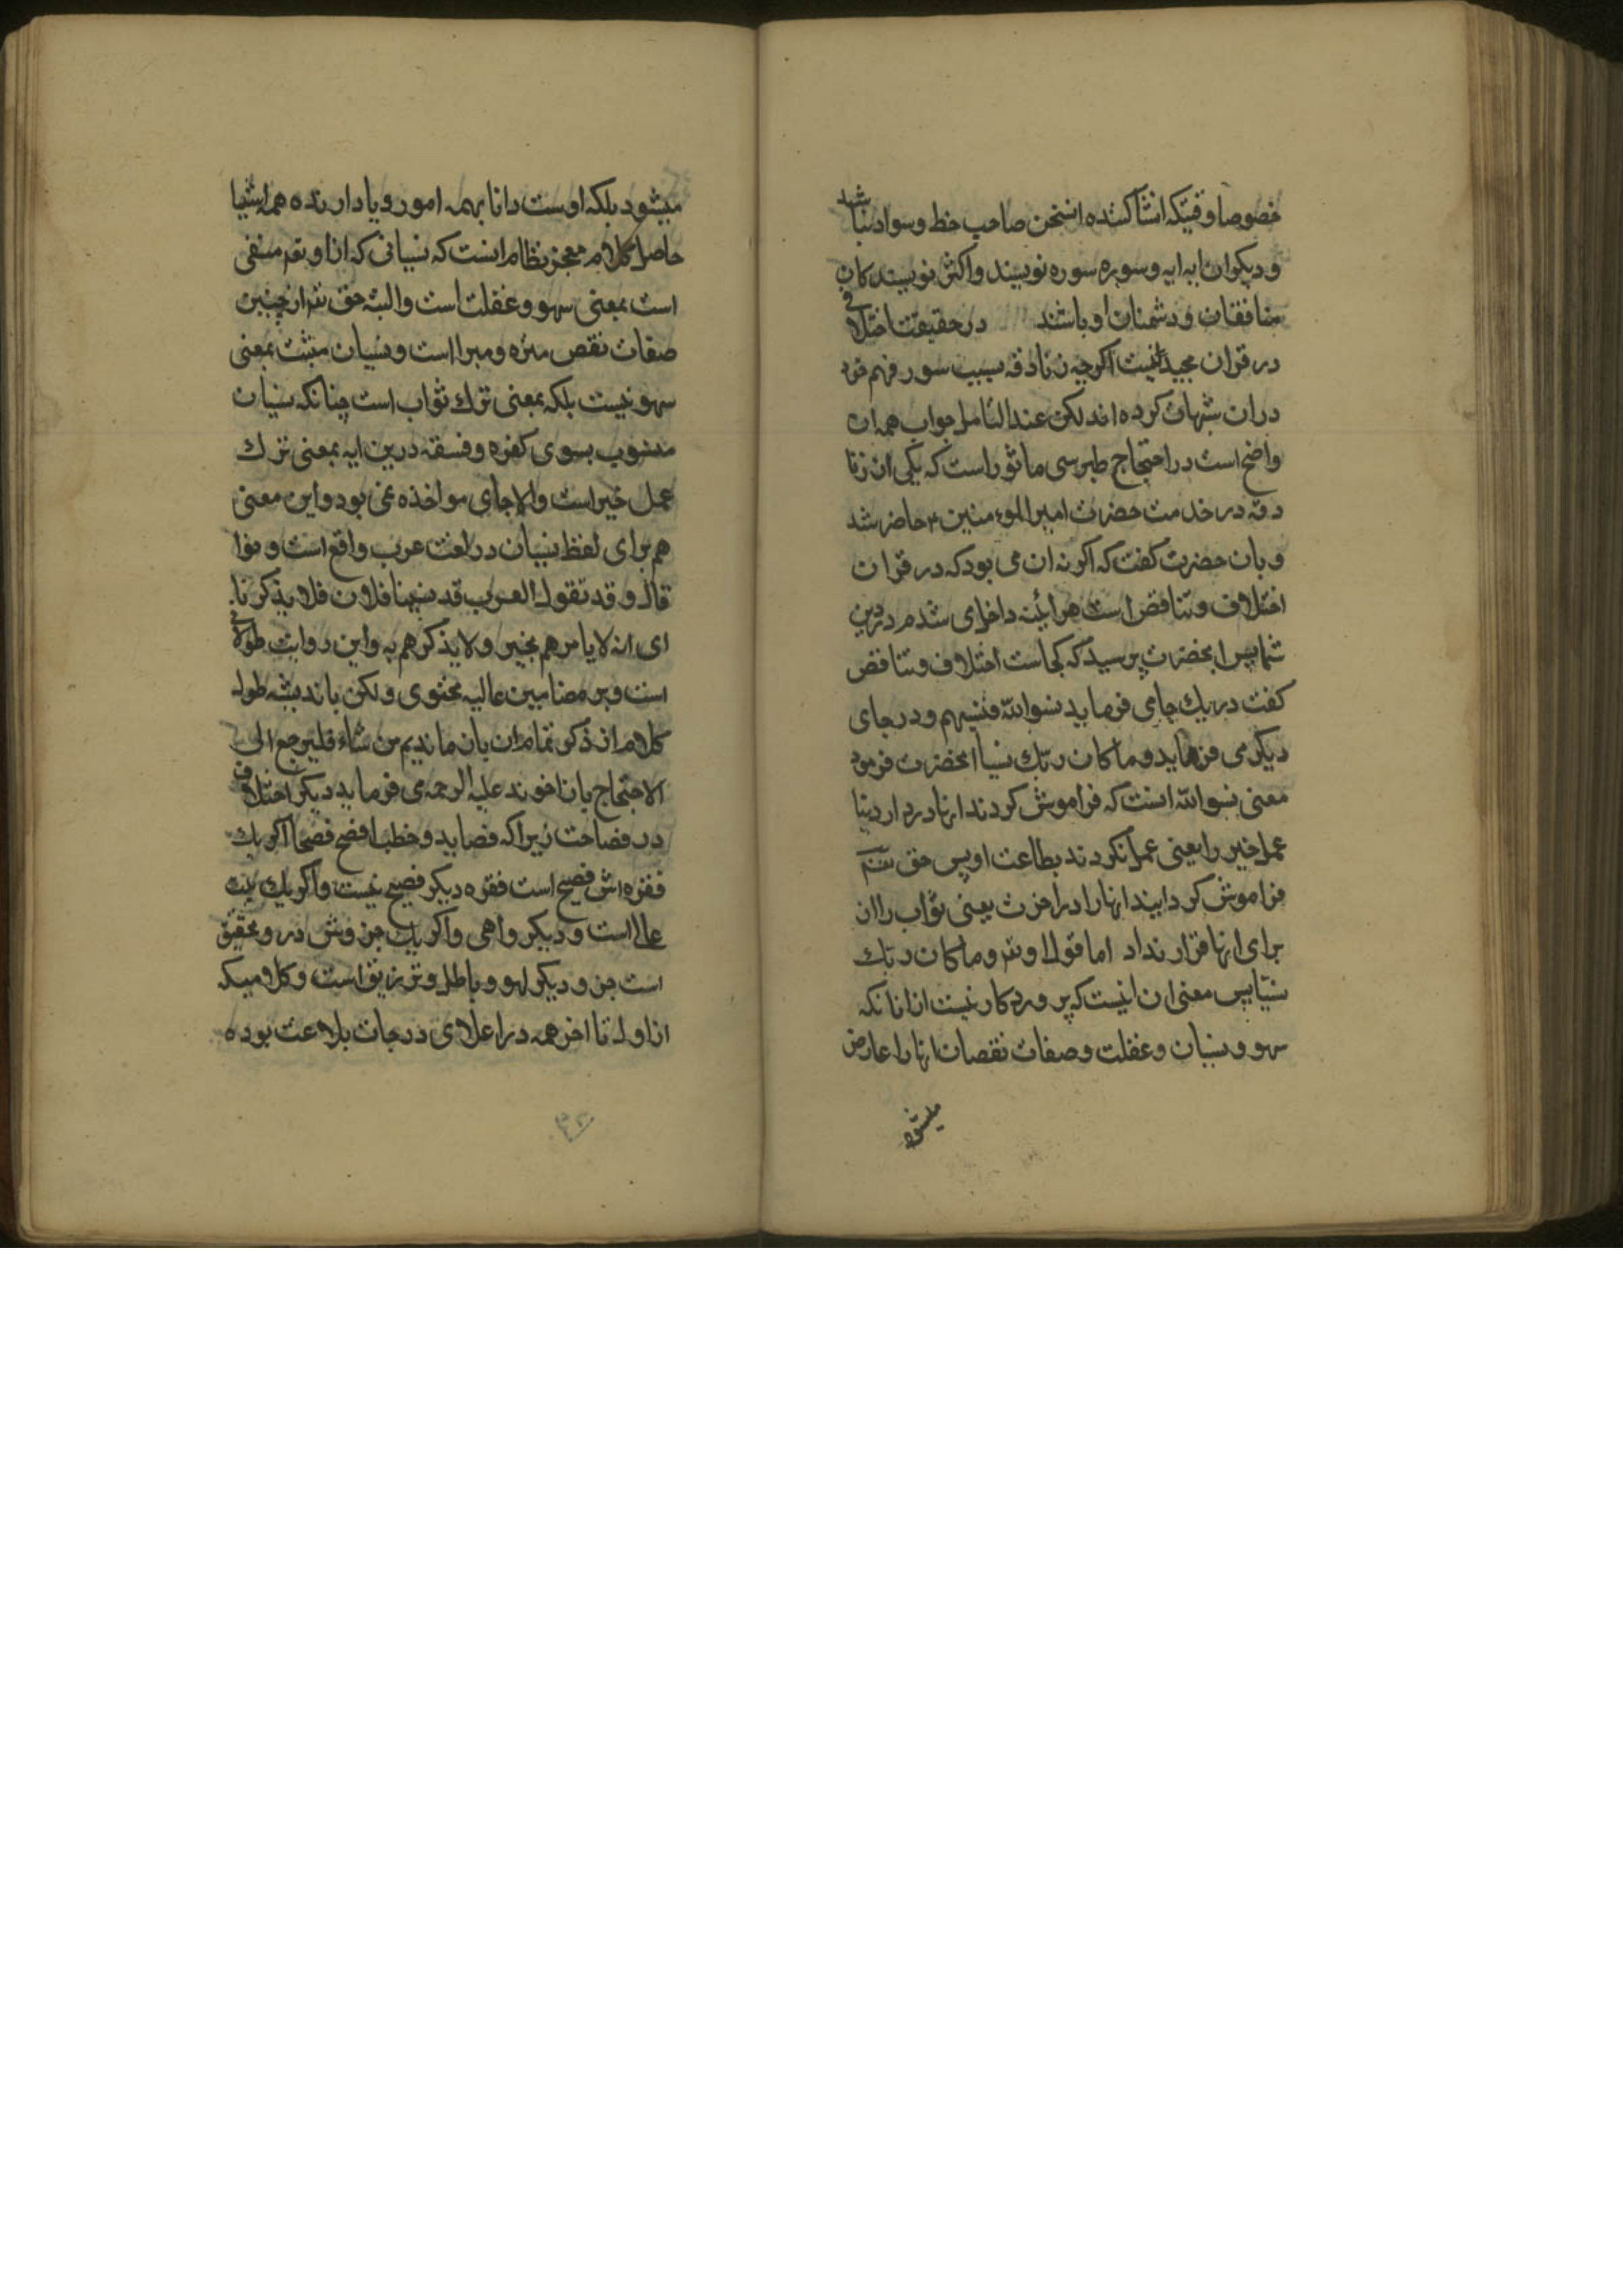 خصوصا وقتیکه انشا کننده انسخن صاحب خط و سواد نباشد
و دیکران ایه ایه و سوره سوره نویسند و اکثر نویسندکان
منافقان و دشمنان او باشند در حقیقت اختلافی
در قران مجید نیست اکرچه زنادقه بسبب سور فهم خود
دران شبهات کرده اند لکن عند التامل جواب همه ان
واضح است در احتجاج طبرسی ماثور است که یکی از زنا
دقه در خدمت حضرت امیر المؤمنین ع حاضر شد
و بان حضرت کفت که اکر نه ان می بود که در قران
اختلاف و تناقض است هر ائینه داخل می شدم در دین
شما پس انحضرت پرسید که کجاست اختلاف و تناقض
کفت در یک جا می فرماید نسوا الله فنسیهم و در جای
دیکر می فرماید و ما کان ربک نسیا انحضرت فرمود
معنی نسوا الله انست که فراموش کردند انها در دار دنیا
عمل خیر را یعنی عمل نکردند بطاعت او پس حق تعم
فراموش کردانید انها را در اخرت یعنی ثواب را از
برای انها قرار نداد اما قول او تعم و ما کان ربک
نسیا پس معنی ان اینست که پروردکار نیست از انانکه
سهو و نسیان و غفلت و صفات نقصان انها را عارض
میشود
میشود بلکه اوست دانا بهمه امور و یاد ارنده همه اشیا
حاصل کلام معجز نظام انست که نسیانی که از او تعم منفی
است بمعنی سهو و غفلت است و البته حق تعم از چنین
صفات نقص منزه و مبرا است و نسیان مثبت بمعنی
سهو نیست بلکه بمعنی ترک ثواب است چنانکه نسیان
منسوب بسوی کفره و فسقه درین ایه بمعنی ترک
عمل خیر است والا جای مواخذه نمی بود و این معنی
هم برای لفظ نسیان در لغت عرب واقع است
قال و قد تقول العرب قد نسینا فلان فلا یذکرنا
ای انه لا یامر هم بخیر و لا یذکرهم به و این روایت طولانی
است و بر مضامین عالیه محتوی و لکن باندیشه طول
کلام از ذکر تمام ان باز ماندیم من شاء فلیرجع الی
الاحتجاج باز اخوند علیه الرحمه می فرماید دیکر اختلاف
در فصاحت زیرا که قصاید و خطب افصح فصحا اکر یک
فقره اش فصیح است فقره دیکر فصیح نیست و اکر یک بیت
عالی است و دیکر واهی و اکر یک جزوش در و تحقیق
است جزو دیکر لهو و باطل و تزریق است و کلامیکه
از اول تا اخر همه در اعلای درجات بلاغت بوده
۳۲